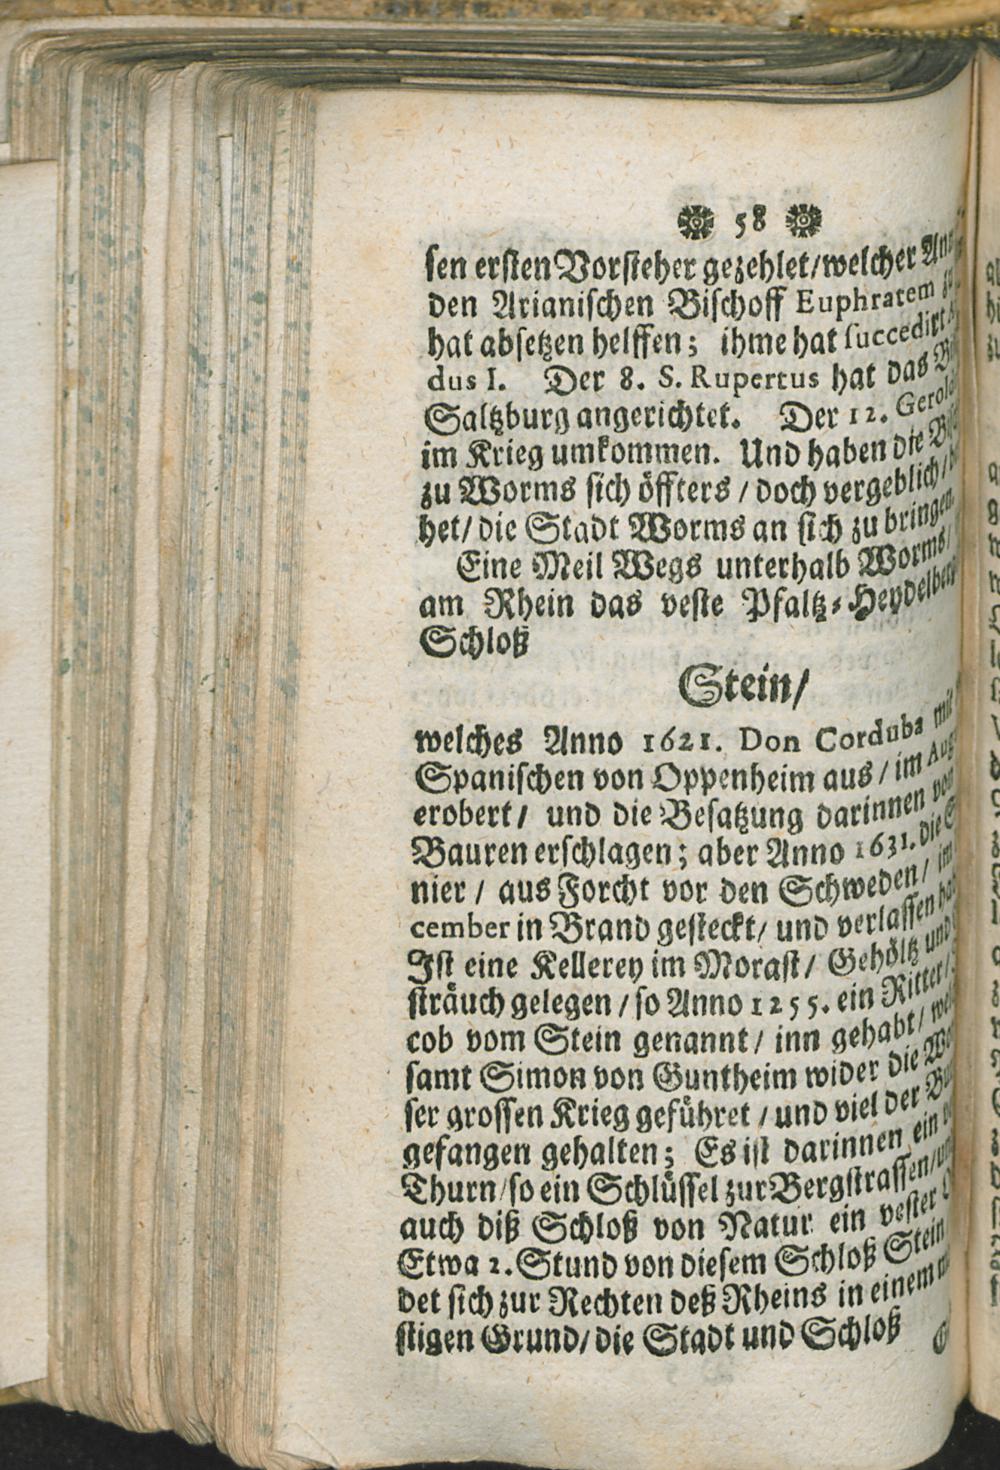 58
sen ersten Vorsteher gezehlet/welcher
den Arianischen Bischoff Euphratem
hat absetzen helffen; ihme hat succedirt
dus I. Der 8. S. Rupertus hat das
Saltzburg angerichtet. Der 12.
im Krieg umkommen. Und haben die
zu Worms sich öffters / doch vergeblich/
het/ die Stadt Worms an sich zu bringen.
Eine Meil Wegs unterhalb Worms/
am Rhein das veste Pfaltz-
Schloß
Stein/
welches Anno 1621. Don Corduba mit
Spanischen von Oppenheim aus / im
erobert / und die Besatzung darinnen von
Bauren erschlagen; aber Anno 1631. die
nier / aus Forcht vor den Schweden/ im
cember in Brand gesteckt/ und verlassen
Ist eine Kellerey im Morast/ Gehöltz und
sträuch gelegen / so Anno 1255. ein Ritter/
cob vom Stein genannt / inn gehabt/
samt Simon von Guntheim wider die
ser grossen Krieg geführet / und viel der
gefangen gehalten; Es ist darinnen ein
Thurn/ so ein Schlüssel zur Bergstrassen/
auch diß Schloß von Natur ein vester
Etwa 2. Stund von diesem Schloß Stein
det sich zur Rechten deß Rheins in einem
stigen Grund/ die Stadt und Schloß